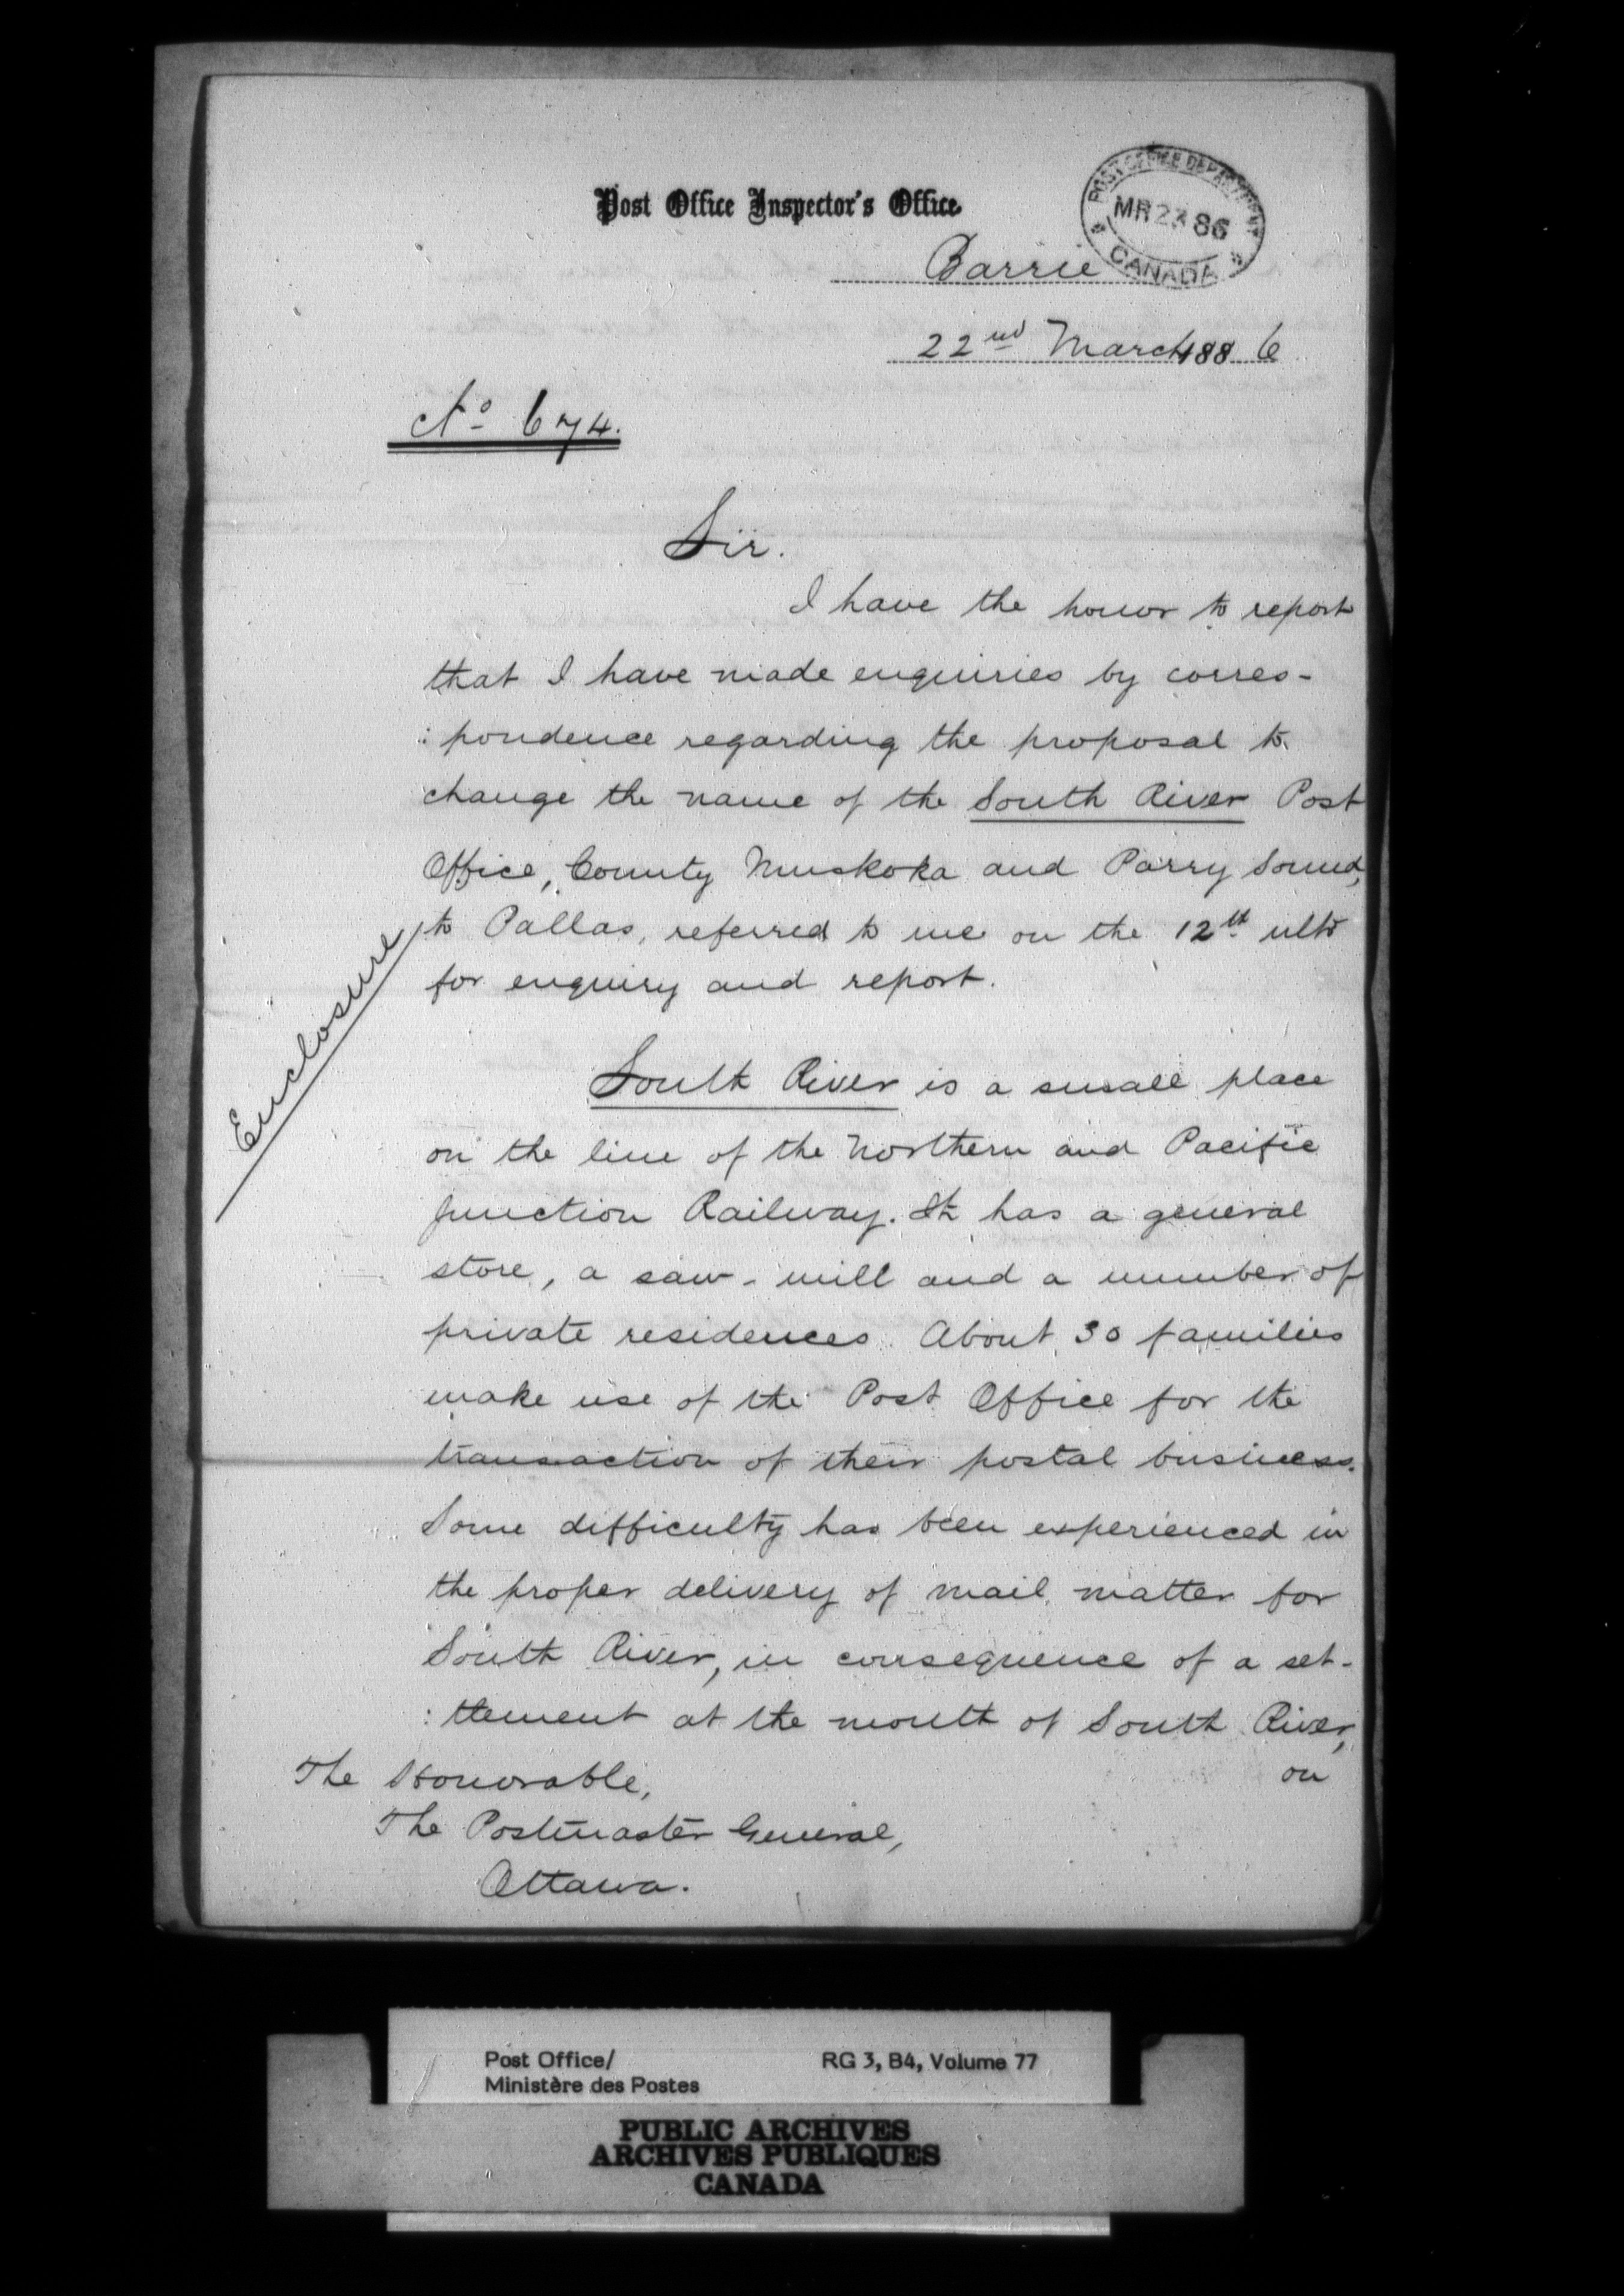 Post Office Inspector's Office
POST OFFICE DEPARTMENT
MR 23 86
CANADA
Barrie
22nd March 1886
No 674.
Sir.
I have the honor to report
that I have made enquiries by corres-
:pondence regarding the proposal to
change the name of the South River Post
Office, County Muskoka and Parry Sound,
to Pallas, referred to me on the 12th ulto
for enquiry and report.
Enclosure
South River is a small place
on the line of the Northern and Pacific
Junction Railway. It has a general
store, a saw-mill and a number of
private residences. About 30 families
make use of the Post Office for the
transaction of their postal business.
Some difficulty has been experienced in
the proper delivery of mail matter for
South River, in consequence of a set-
:tlement at the mouth of South River,
on
The Honorable,
The Postmaster General,
Ottawa.
Post Office/
Ministère des Postes
RG 3, B4, Volume 77
PUBLIC ARCHIVES
ARCHIVES PUBLIQUES
CANADA